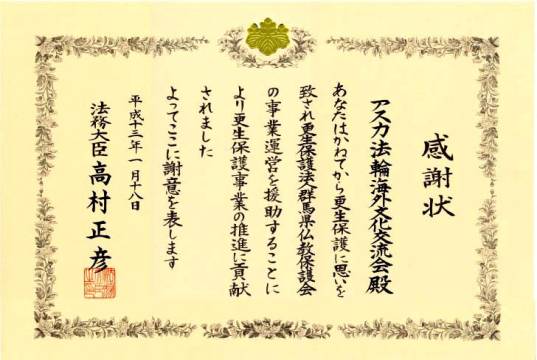 感謝状
アスカ法輪海外文化交流会殿
あなたはかねてから更生保護に思いを
致され更生保護法人群馬県仏教保護会
の事業運営を援助することに
より更生保護事業の推進に貢献
されました
よってここに謝意を表します
平成十三年一月十八日
法務大臣 高村正彦